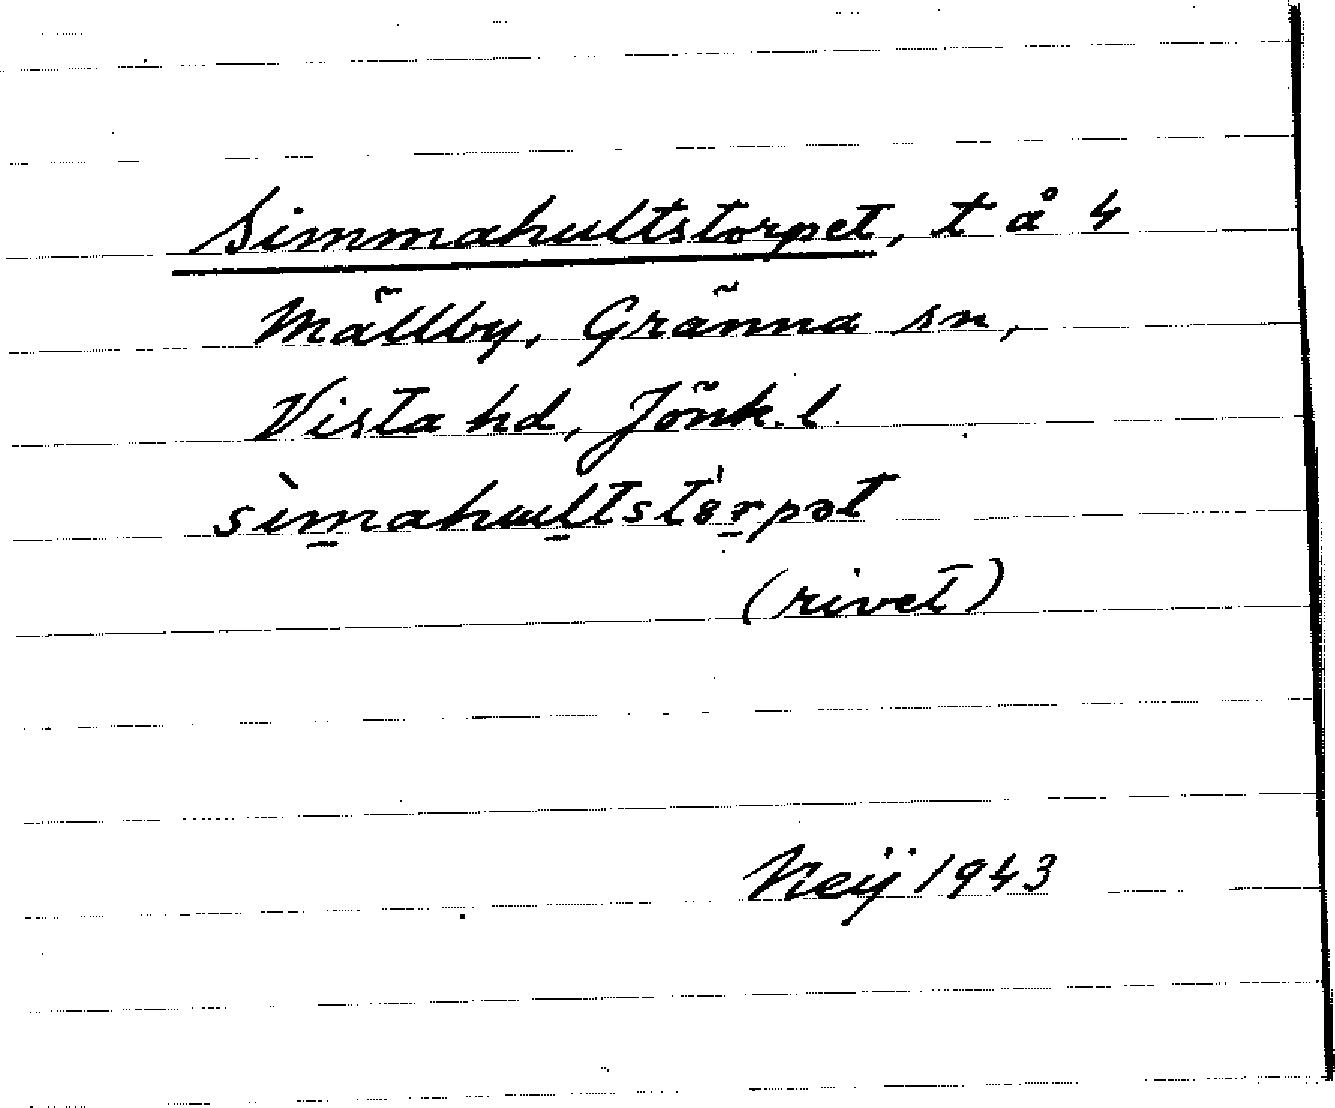 Simmahultstorpet, t å 4
Mällby, Gränna sn,
Vista hd, Jönk. l.
sìm̱ahuḻtstɵ́ṟpət
(rivet)
Neij 1943